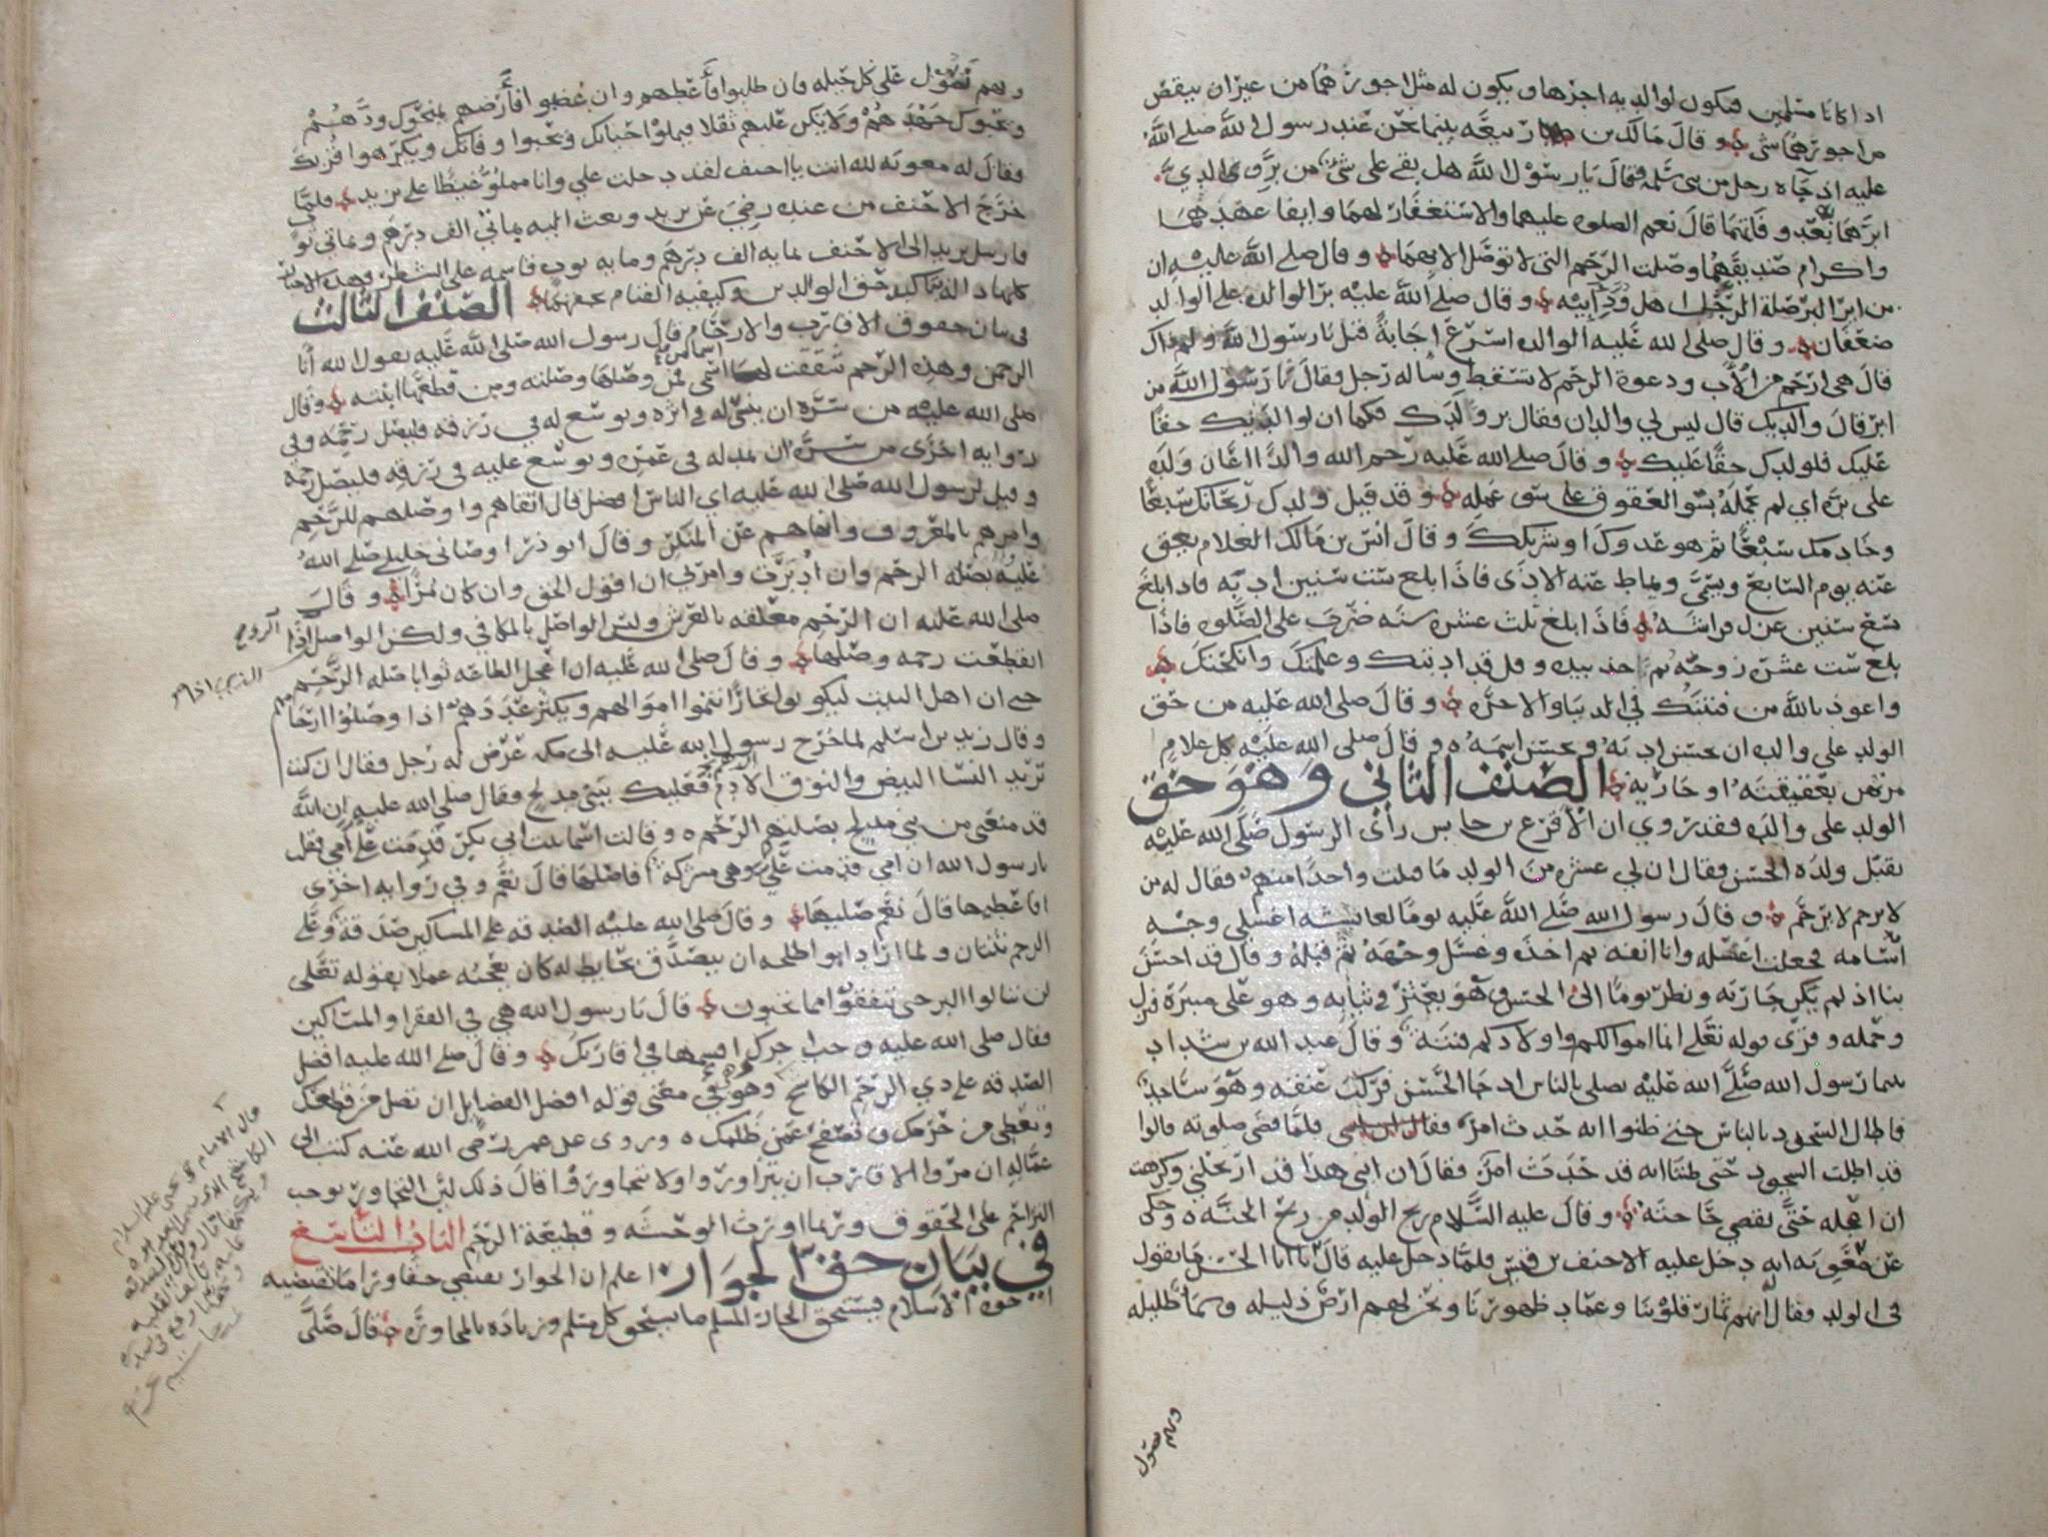 اذا كانا مسلمين فيكون لوالديه اجرها ويكون له مثل اجورهما من غير ان ينقص
من اجورهما شي وقال مالك بن ربيعه بينما نحن عند رسول الله صلى الله
عليه اذ جآه رجل من بني سلمه فقال يا رسول الله هل بقي علي شئ من بر والدي
ابرهما به بعد وفاتهما قال نعم الصلوه عليهما والاستغفار لهما وايفا عهدهما
واكرام صديقهما وصلت الرحم التي لا توصل الا بهما وقال صلى الله عليه ان
من ابر البر صلة الرجل اهل ود ابيه وقال صلى الله عليه بر الوالده على الوالد
ضعفان وقال صلى الله عليه الوالده اسرع اجابةً قيل يا رسول الله ولم ذاك
قال هي ارحم من الأب ودعوة الرحم لا تسقط وساله رجل فقال يا رسول الله من
ابر قال والديك قال ليس لي والدان فقال بر ولدك فكما ان لوالديك حقا
عليك فلولدك حقا عليك وقال صلى الله عليه رحم الله والدًا اعان ولده
على بره اي لم يحمله بسو العقوق على سوى عمله وقد قيل ولدك ريحانك سبعًا
وخادمك سبعًا ثم هو عدوك او شريكك وقال انس بن مالك الغلام يعق
عنه يوم السابع ويسمى ويماط عنه الاذى فاذا بلغ ست سنين ادبه فاذا بلغ
سبع سنين عزل فراشه فاذا بلغ ثلث عشره سنه ضرب على الصلوه فاذا
بلغ ست عشره زوجه ثم اخذ بيده وقل قد ادبتك وعلمتك وانكحتك
واعوذ بالله من فتنتك في الدنيا والاخره وقال صلى الله عليه من حق
الولد على والده ان يحسن ادبه ويحسن اسمه وقال صلى الله عليه كل غلام
مرتهن بعقيقته او جاريه الصنف الثاني وهو حق
الولد على والده فقد روي ان الأقرع بن حابس رأى الرسول صلى الله عليه
يقبل ولده الحسن فقال ان لي عشره من الولد ما قبلت واحدًا منهم فقال له من
لا يرحم لا يرحم وقال رسول الله صلى الله عليه يومًا لعائشه اغسلي وجه
اسامه فجعلت اغسله وانا انفه ثم اخذه وغسل وجهه ثم قبله وقال قد احسن
بنا اذ لم يكن جاريه ونظر يومًا الى الحسن وهو يعثر في ثيابه وهو على منبره فنزل
وحمله وقرى قوله تعلى انما اموالكم واولادكم فتنة وقال عبد الله بن شداد
بينما رسول الله صلى الله عليه يصلي بالناس اذ جا الحسن فركب عنقه وهو ساجد
فاطال السجود بالناس حتى ظنوا انه حدث امر فلما قضى صلوته قالوا
قد اطلت السجود حتى ظننا انه قد حدث امر فقال ان ابني هذا قد ارتحلني وكرهت
ان اعجله حتى يقضي حاجته وقال عليه السلام ريح الولد من ريح الجنه وحكى
عن معويه انه دخل عليه الاحنف بن قيس فلما دخل عليه قال يا ابا الحسن ما تقول
في الولد فقال انهم ثمار قلوبنا وعماد ظهورنا ونحن لهم ارض ذليله وسما ظليله
وبهم نصول
وبهم نصول على كل جليله فان طلبوا فأعطهم وان غضبوا فأرضهم يمنحوك ودهم
ويحبوك جهدهم ولا يكن عليهم ثقلا فيملوا حياتك ويحبوا وفاتك ويكرهوا قربك
فقال له معويه لله انت يا احنف لقد دخلت علي وانا مملوٌ غيظًا على يزيد فلما
خرج الاحنف من عنده رضي عن يزيد وبعث اليه بمائتي الف درهم ومائتي ثوب
فارسل يزيد الى الاحنف بمايه الف درهم ومايه ثوب قاسمه على الشطر وهذه الاخبار
كلها داله تاكيد حق الوالدين وكيفيه القيام بحقهما الصنف الثالث
في بيان حقوق الاقارب والارحام قال رسول الله صلى الله عليه يقول الله أنا
الرحمن وهذه الرحم شققت لها اسما من اسمي فمن وصلها وصلته ومن قطعها ابتته وقال
صلى الله عليه من سره ان ينسى له في اثره ويوسع له في رزقه فليصل رحمه وفي
روايه اخرى من سره ان يمد له في عمره ويوسع عليه في رزقه فليصل رحمه
وقيل لرسول الله صلى الله عليه اي الناس افضل قال اتقاهم واوصلهم للرحم
وامرهم بالمعروف وانهاهم عن المنكر وقال ابو ذر اوصاني خليلي صلى الله
عليه بصله الرحم وان ادبرت وامرني ان اقول الحق وان كان مرًا وقال
صلى الله عليه ان الرحم معلقه بالعرش وليس الواصل بالمكافي ولكن الواصل الذي اذا
انقطعت رحمه وصلها وقال صلى الله عليه ان اعجل الطاعه ثوابا صله الرحم
حتى ان اهل البيت ليكونوا فجارًا فتنموا اموالهم ويكثر عددهم اذا وصلوا ارحامهم
وقال زيد بن اسلم لما خرج رسول الله عليه الى مكه عرض له رجل فقال ان كنت
تريد النسا البيض والنوق الأدم فعليك ببني مدلج فقال صلى الله عليه ان الله
قد منعني من بني مدلج بصلتهم الرحم وقالت اسما بنت ابي بكر قدمت علي امي فقلت
يا رسول الله ان امي قدمت علي وهي مشركة أفاصلها قال نعم وفي روايه اخرى
افاعطيها قال نعم صليها وقال صلى الله عليه الصدقه على المساكين صدقة وعلى
الرحم ثنتان ولما اراد ابو طلحه ان يتصدق بحايط له كان يعجبه عملا بقوله تعلى
لن تنالوا البر حتى تنفقوا مما تحبون قال يا رسول الله هي في الفقرا والمساكين
فقال صلى الله عليه وجب اجرك اقسمها في اقاربك وقال صلى الله عليه افضل
الصدقه على ذي الرحم الكاشح وهو في معنى قوله افضل الفضايل ان تصل من قطعك
وتعطي من حرمك وتصفح عمن ظلمك وروي عن عمر رضي الله عنه كتب الى
عماله ان مروا الاقارب ان يتزاوروا ولا يتجاوروا قال ذلك لئن التجاور يوجب
التزاحم على الحقوق وربما اورث الوحشه وقطيعة الرحم الباب التاسع
في بيان حق الجوار اعلم ان الجوار يقتضي حقا ورا ما تقتضيه
اخوه الاسلام فيستحق الجار المسلم ما يستحق كل مسلم وزياده بالمجاورة فقال صلى